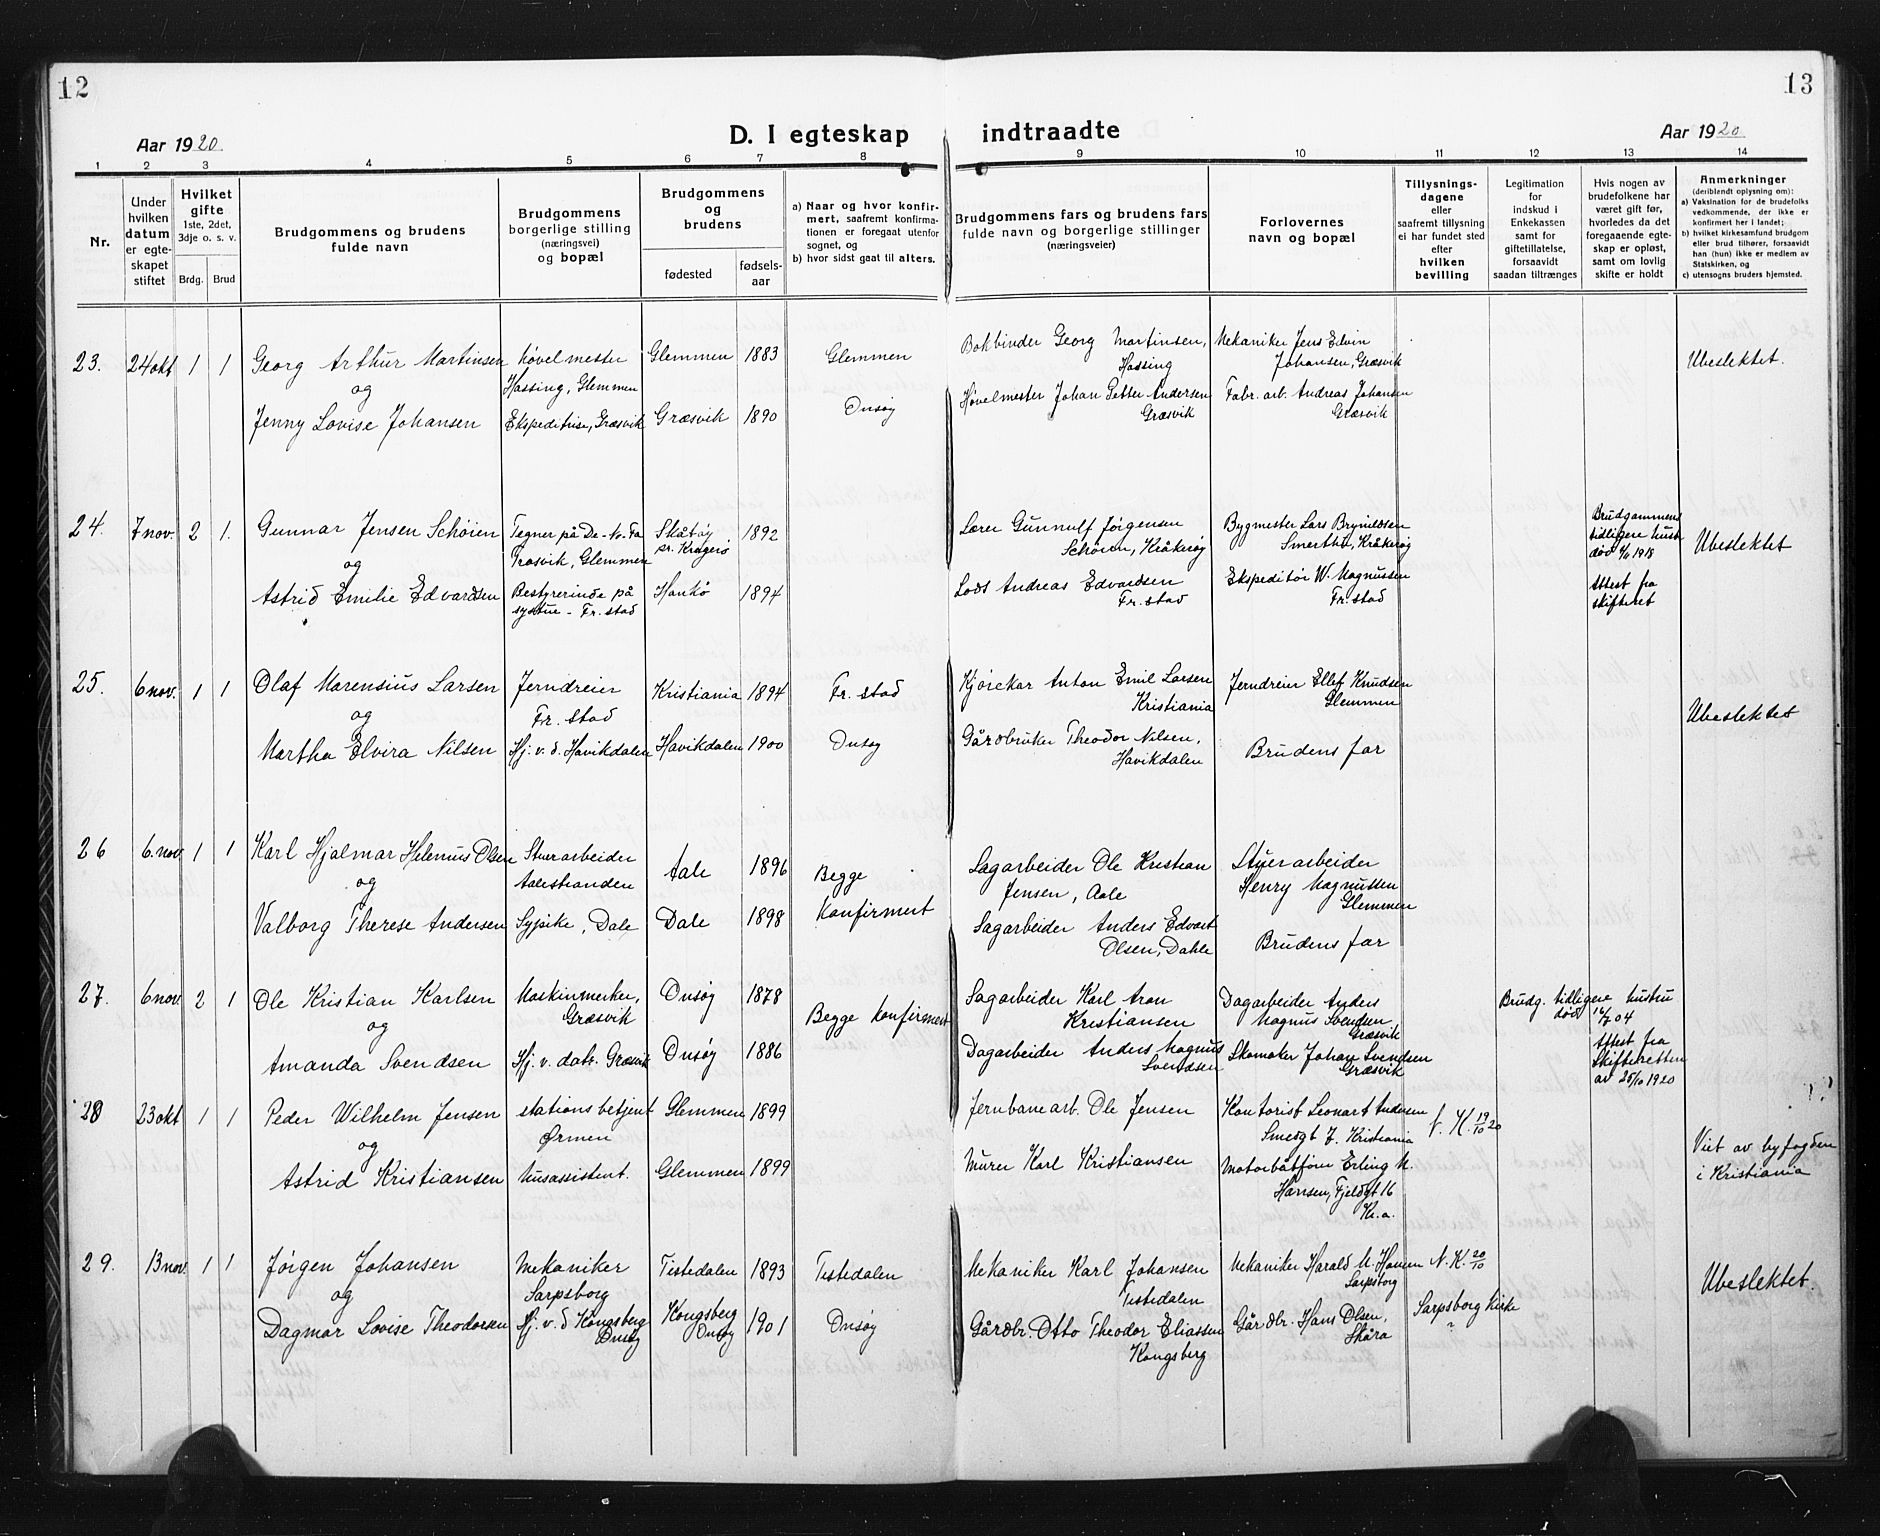 12
13
Aar 1920
D. I egteskap indtraadte
Aar 1920
1 2 3 4 5 6 7 8 9 10 11 12 13 14
Nr.
Under hvilken datum er egteskapet stiftet
Hvilket gifte 1ste, 2det, 3dje o. s. v.
Brdg. Brud
Brudgommens og brudens fulde navn
Brudgommens borgerlige stilling (næringsvei) og bopæl
Brudgommens og brudens
fødested
fødselsaar
a) Naar og hvor konfirmert, saafremt konfirmationen er foregaat utenfor sognet, og
b) hvor sidst gaat til alters.
Brudgommens fars og brudens fars fulde navn og borgerlige stillinger (næringsveier)
Forlovernes navn og bopæl
Tillysningsdagene eller saafremt tillysning ei har fundet sted efter hvilken bevilling
Legitimation for indskud i Enkekassen samt for giftetillatelse, forsaavidt saadan tiltrænges
Hvis nogen av brudefolkene har været gift før, hvorledes da det foregaaende egteskap er opløst, samt om lovlig skifte er holdt
Anmerkninger
(deriblandt oplysning om):
a) Vaksination for de brudefolks vedkommende, der ikke er konfirmert her i landet;
b) hvilket kirkesamfund brudgom eller brud tilhører, forsaavidt han (hun) ikke er medlem av Statskirken, og
c) utensogns bruders hjemsted.
23. 24 okt 1 1 Georg Arthur Martinsen
og
Jenny Lovise Johansen
høvelmester
Hassing, Glemmen
Ekspeditrise, Græsvik
Glemmen 1883 Glemmen
Græsvik 1890 Onsøy
Bokbinder Georg Martinsen,
Hassing
Høvelmester Johan Petter Andersen
Græsvik
Mekaniker Jens Edvin
Johansen, Græsvik
Fabr. arb. Andreas Johansen
Græsvik
Ubeslektet.
24. 7 nov. 2 1. Gunnar Jensen Schöien
og
Astrid Emilie Edvardsen
Tegner på De-No-Fa
Trosvik, Glemmen
Bestyrerinde på
systue - Fr. stad
Skåtøy
pr. Kragerø 1892
Hankø 1894
Lærer Gunnulf Jørgensen
Schöien, Kråkerøy
Lods Andreas Edvardsen
Fr. stad
Bygmester Lars Brynildsen
Smertbu, Kråkerøy
Ekspeditör W. Magnussen
Fr. stad
Brudgommens
tidligere hustr
död 1918
Attest fra
skifteret
Ubeslektet
25. 6 nov. 1 1 Olaf Marensius Larsen
og
Martha Elvira Nilsen
Jerndreier
Fr. stad
Hj. v. d. Havikdalen
Kristiania 1894 Fr. stad
Havikdalen 1900 Onsøy
Kjørekar Anton Emil Larsen
Kristiania
Gårdbruker Theodor Nilsen,
Havikdalen
Jerndreier Ellef Knudsen
Glemmen
Brudens far
Ubeslektet
26 6. nov 1 1 Karl Hjalmar Helenius Olsen
og
Valborg Therese Andersen
Stuerarbeider
Aalestranden
Sypike, Dale
Aale 1896 Begge
Dale 1898 konfirmert
Sagarbeider Ole Kristian
Jensen, Aale
Sagarbeider Anders Edvart
Olsen, Dahle
Styerarbeider
Henry Magnussen
Glemmen
Brudens far
27. 6 nov. 2 1 Ole Kristian Karlsen
og
Amanda Svendsen
Maskinmerker,
Græsvik
Hj. v. datr. Græsvik
Onsøy 1878
Onsøy 1886
Begge konfirmert
Sagarbeider Karl Aron
Kristiansen
Dagarbeider Anders Magnus
Svendsen
Dagarbeider Anders
Magnus Svendsen
Græsvik
Skomaker Johan Svendsen
Græsvik
Brudg. tidligere hustru
död 16/7 04
Attest fra
Skifteretten
av 25/10 1920
28 23 okt 1 1 Peder Wilhelm Jensen
og
Astrid Kristiansen
stationsbetjent
Ørmen
Husassistent.
Glemmen 1899
Glemmen 1899
Jernbanearb. Ole Jensen
Murer Karl Kristiansen
Kontorist Leonart Andersen
Smedgt 7. Kristiania
Motorbåtfører Erling M.
Hansen, Fjeldgt 16
Kr.a.
19/10 20
Viet av byfogden
i Kristiania
29. 13 nov. 1 1 Jørgen Johansen
og
Dagmar Lovise Theodorsen
Mekaniker
Sarpsborg
Hj. v. d Kongsberg
Onsøy
Tistedalen 1893 Tistedalen
Kongsberg
Onsøy 1901 Onsøy
Mekaniker Karl Johansen
Tistedalen
Gårdbr. Otto Theodor Eliassen
Kongsberg
Mekaniker Harald M. Hansen
Sarpsborg
Gårdbr. Hans Olsen,
Skåra
N. K. 20/10
Sarpsborg Kirke
Ubeslektet.